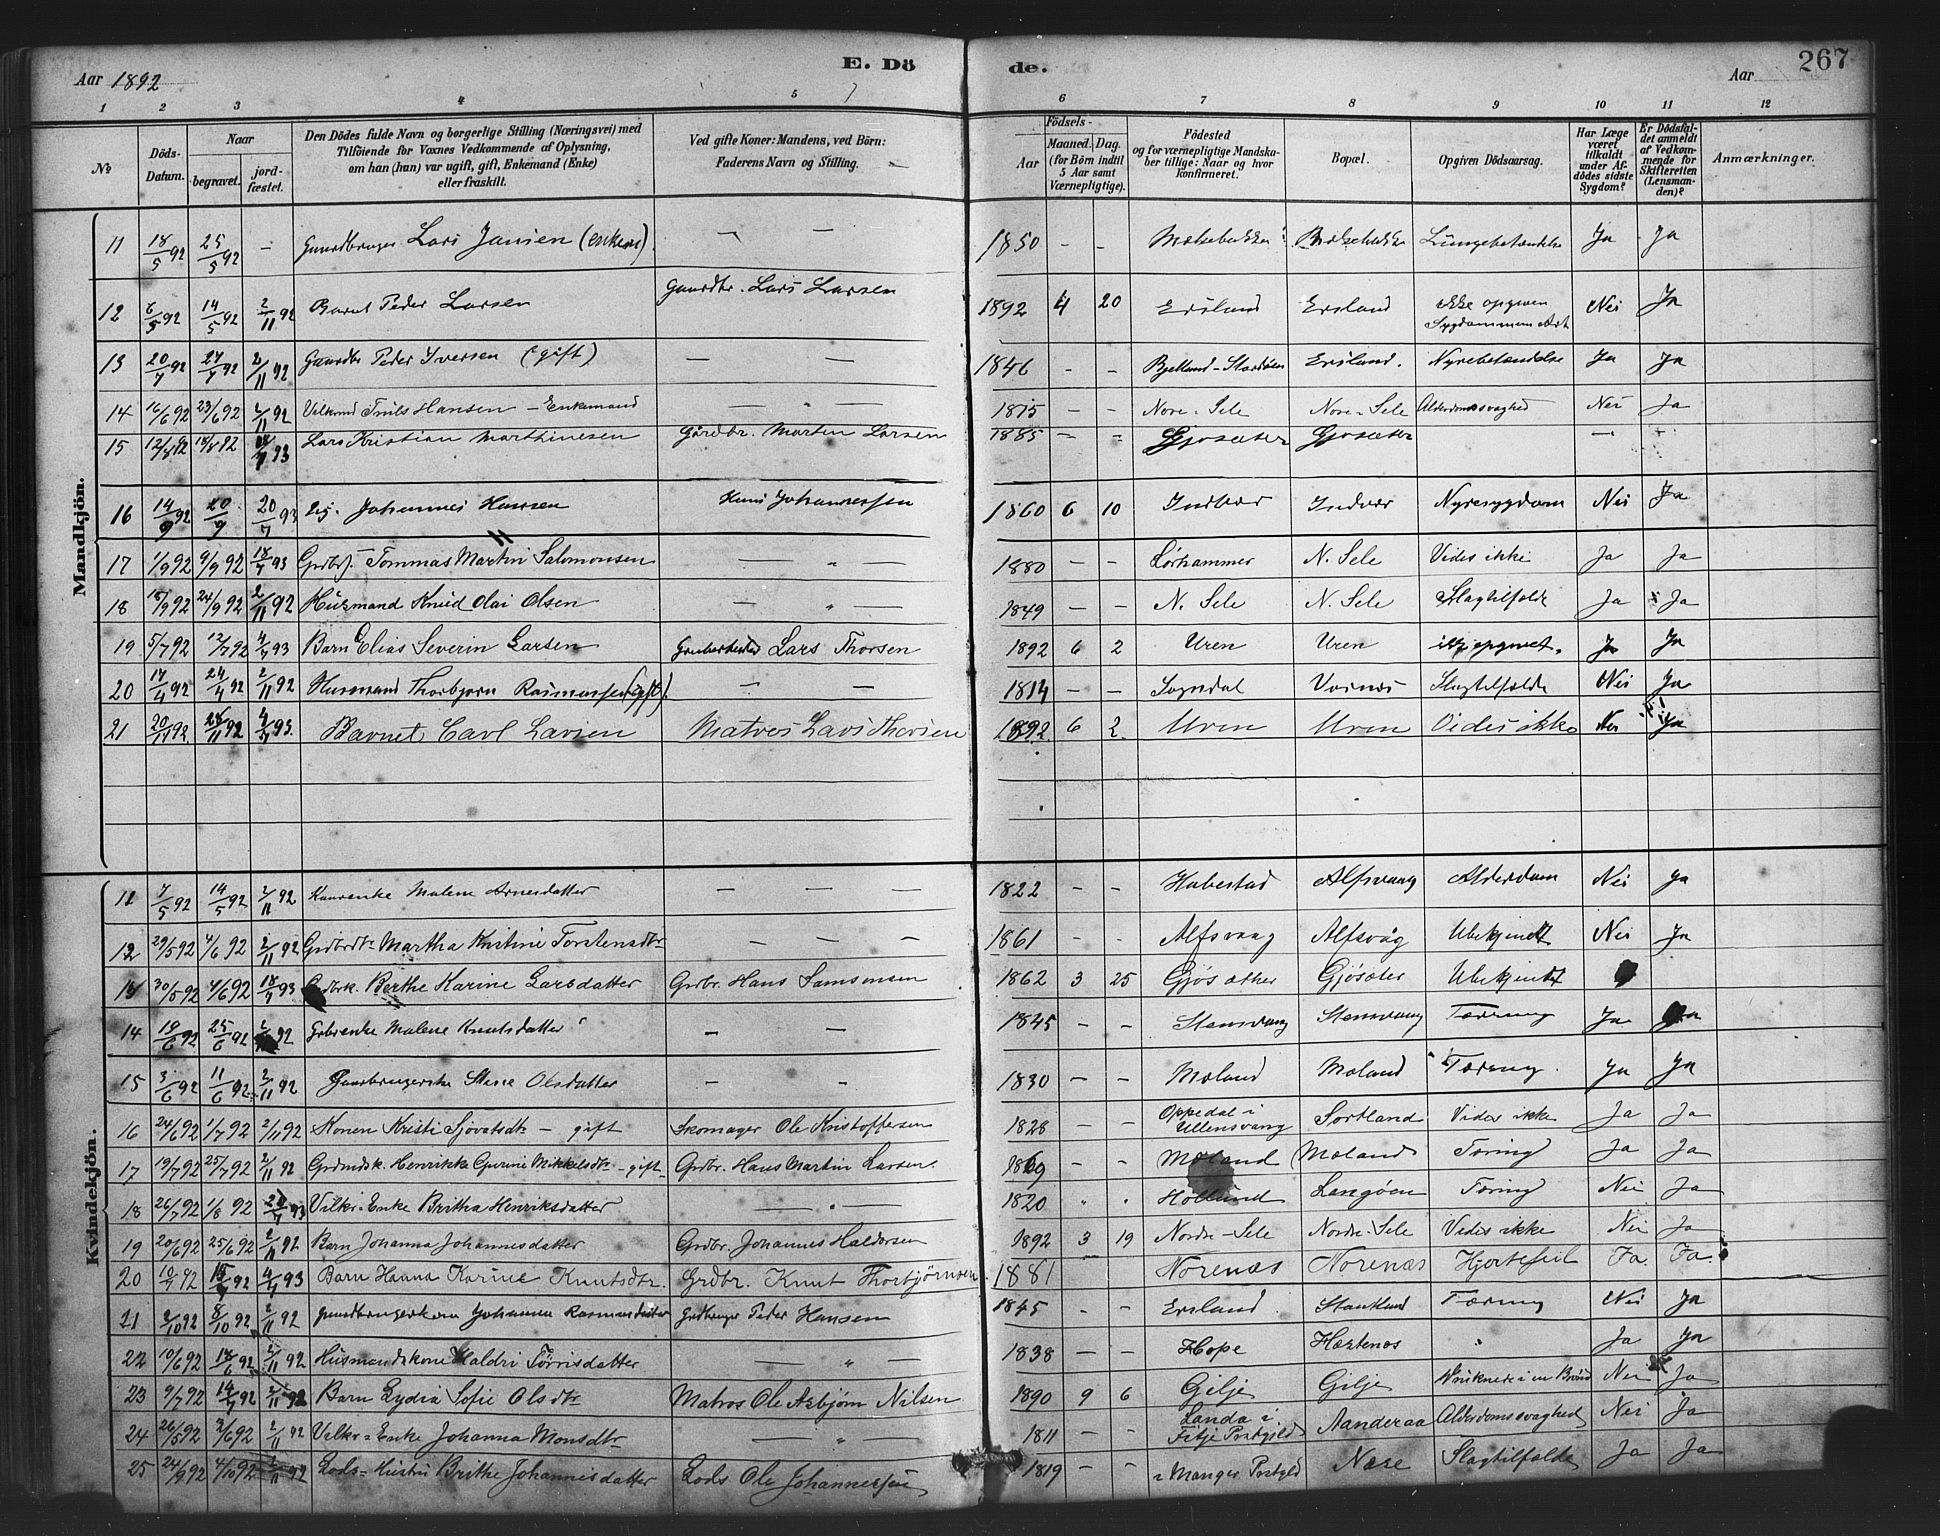 Aar 1892
E. Dö de.
Aar
267
1 2 3 4 5 6 7 8 9 10 11 12
No
Döds-Datum.
Naar
begravet.
jord-fæstet.
Den Dödes fulde Navn og borgerlige Stilling (Næringsvei) med
Tilföiende for Voxnes Vedkommende af Oplysning,
om han (hun) var ugift, gift, Enkemand (Enke)
eller fraskilt.
Ved gifte Koner: Mandens, ved Börn:
Faderens Navn og Stilling.
Födsels-
Aar
Maaned. Dag.
(for Börn indtil
5 Aar samt
Værnepligtige).
Födested
og for værnepligtige Mandska-
ber tillige: Naar og hvor
konfirmeret.
Bopæl.
Opgiven Dödsaarsag.
Har Læge
været
tilkaldt
under Af-
dödes sidste
Sygdom?
Er Dödsfal-
det anmeldt
af Vedkom-
mende for
Skifteretten
(Lensman-
den)?
Anmærkninger.
Mandkjön.
11 18/5 92 25/5 92 - Gaardbruger Lars Jansen (enkem) — — 1850 - - Ja Ja
12 6/5 92 14/5 92 2/11 92 Barnet Peder Larsen Gaardbr. Lars Larsen 1892 4 20 Ersland Ersland ikke opgiven Sygdommens Art Nei Ja
13 20/7 92 27/7 92 2/11 92 Gaardbr Peder Iversen (gift) — — 1846 - - Ersland. Nyrebetændelse Ja Ja
14 16/6 92 23/6 92 2/11 92 Truls Hansen - Enkemand — " — 1815 - - Nore-Sele Nore-Sele Alderdomssvaghed Nei Ja
15 12/8 92 18/8 92 93 Lars Kristian Marthinesen Gårdbr. Martin Larsen 1885 - - Gjøsæter Gjøsæter —
16 14/9 92 20/9 20/7 93 Johannes Hansen Hans Johannessen 1860 6 10 Indvær Indvær Nyresygdom Nei Ja
17 1/9 92 9/9 92 18/7 93 Tommas Martin Salomonsen — " — 1880 - - Lørhammer N. Sele Vides ikke Ja Ja
18 18/9 92 24/9 92 2/11 92 Husmand Knud Olai Olsen — " — 1849 - - N. Sele N. Sele Slagtilfælde Ja Ja
19 5/7 92 12/7 92 4/7 93 Barn Elias Severin Larsen Lars Thorsen 1892 6 2 Uren Uren opgivet. Ja Ja
20 17/4 92 24/4 92 2/11 92 Husmand Thorbjørn Rasmussen (gift). — — 1814 - - Sogndal Vornæs Slagtilfælde Nei Ja
21 20/11 92 11 92 93 Barnet Carl Larsen Matros Lars Thorsen 1892 6 2 Uren Uren Vides ikke Nei Ja
Kvindekjön.
11 7/5 92 14/5 92 2/11 92 Malene Arnesdatter — — — 1822 - - Habestad Alfsvaag Alderdom Nei Ja
12 29/5 92 4/6 92 2/11 92 Martha Kristine Torstensdtr — — — 1861 - - Alfsvaag Alfsvåg Ubekjendt Nei Ja
13 30/5 92 4/6 92 18/7 93 Grdbrk. Berthe Karine Larsdatter Grdbr. Hans Samsonsen 1862 3 25 Gjøsæther Gjøsæter Ubekjendt
14 19/6 92 25/6 92 92 Malene Knutsdatter — — 1845 - - Stensvaag Stensvaag Tæring Ja Ja
15 3/6 92 11/6 92 2/11 92 Stine Olsdatter — — 1830 - - Moland Moland Tæring. Ja Ja
16 24/6 92 1/7 92 2/11 92 Konen Kristi Sjovatsdtr - gift Skomager Ole Kristoffersen 1828 - - Oppedal i Ullensvang Sortland Vides ikke Ja Ja
17 19/7 92 25/7 92 2/11 92 Henrikke Gurine Mikkelsdtr - gift Grdbr. Hans Martin Larsen. 1869 - - Moland Moland Tæring Ja Ja
18 26/7 92 1/8 92 20/7 93 Vilkr-Enke Britha Henriksdatter — " — 1820 " " Hollund Langøen Tæring Nei Ja
19 20/6 92 25/6 92 2/11 92 Barn Johanna Johannesdatter Grdbr. Johannes Haldorsen 1892 3 19 Nordre-Sele Nordre-Sele Vides ikke Nei Ja
20 92 92 93 Barn Hanna Karine Knutsdtr. Grdbr. Knut Thorbjørnsen 1881 Norenæs Norenæs Hjertefeil Ja. Ja.
21 2/10 92 8/10 92 2/11 92 Johanna Rasmusdatter Peder Hansen 1845 - - Ersland Tæring Nei Ja
22 10/6 92 18/6 92 2/11 92 Husmandskone Haldri Tørrisdatter — " — 1838 - - Hope " Ja Ja
23 9/7 92 14/7 92 2/11 92 Barn Lydia Sofie Olsdtr Matros Ole Asbjørn Nilsen 1890 9 6 Gilje Gilje Druknede i en Brønd Nei Ja
24 26/5 92 3/6 92 2/11 92 Vilkr-Enke Johanna Monsdtr — " — 1811 - - Landa i Fitje Prstgjeld Aanderaa Alderdomssvaghed Nei Ja
25 24/9 92 4/10 92 2/11 92 Lods-Hustru Brithe Johannesdatter Lods Ole Johannessen 1819 - - Manger Prstgjld Næse Slagtilfælde Ja Ja